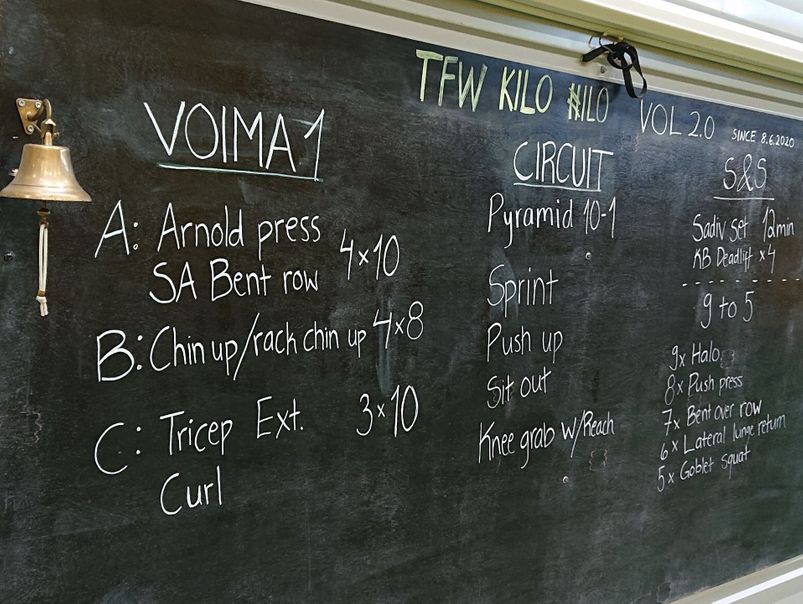 TFW KILO #ILO VOL 2.0 SINCE 8.6.2020
VOIMA 1
A: Arnold press
SA Bent row 4x10
B: Chin up/rack chin up 4x8
C: Tricep Ext. 3x10
Curl
CIRCUIT
Pyramid 10-1
Sprint
Push up
Sit out
Knee grab w/Reach
S&S
Sadiv set 12min
KB Deadlift x4
9 to 5
9x Halo
8x Push press
7x Bent over row
6x Lateral lunge return
5x Goblet squat